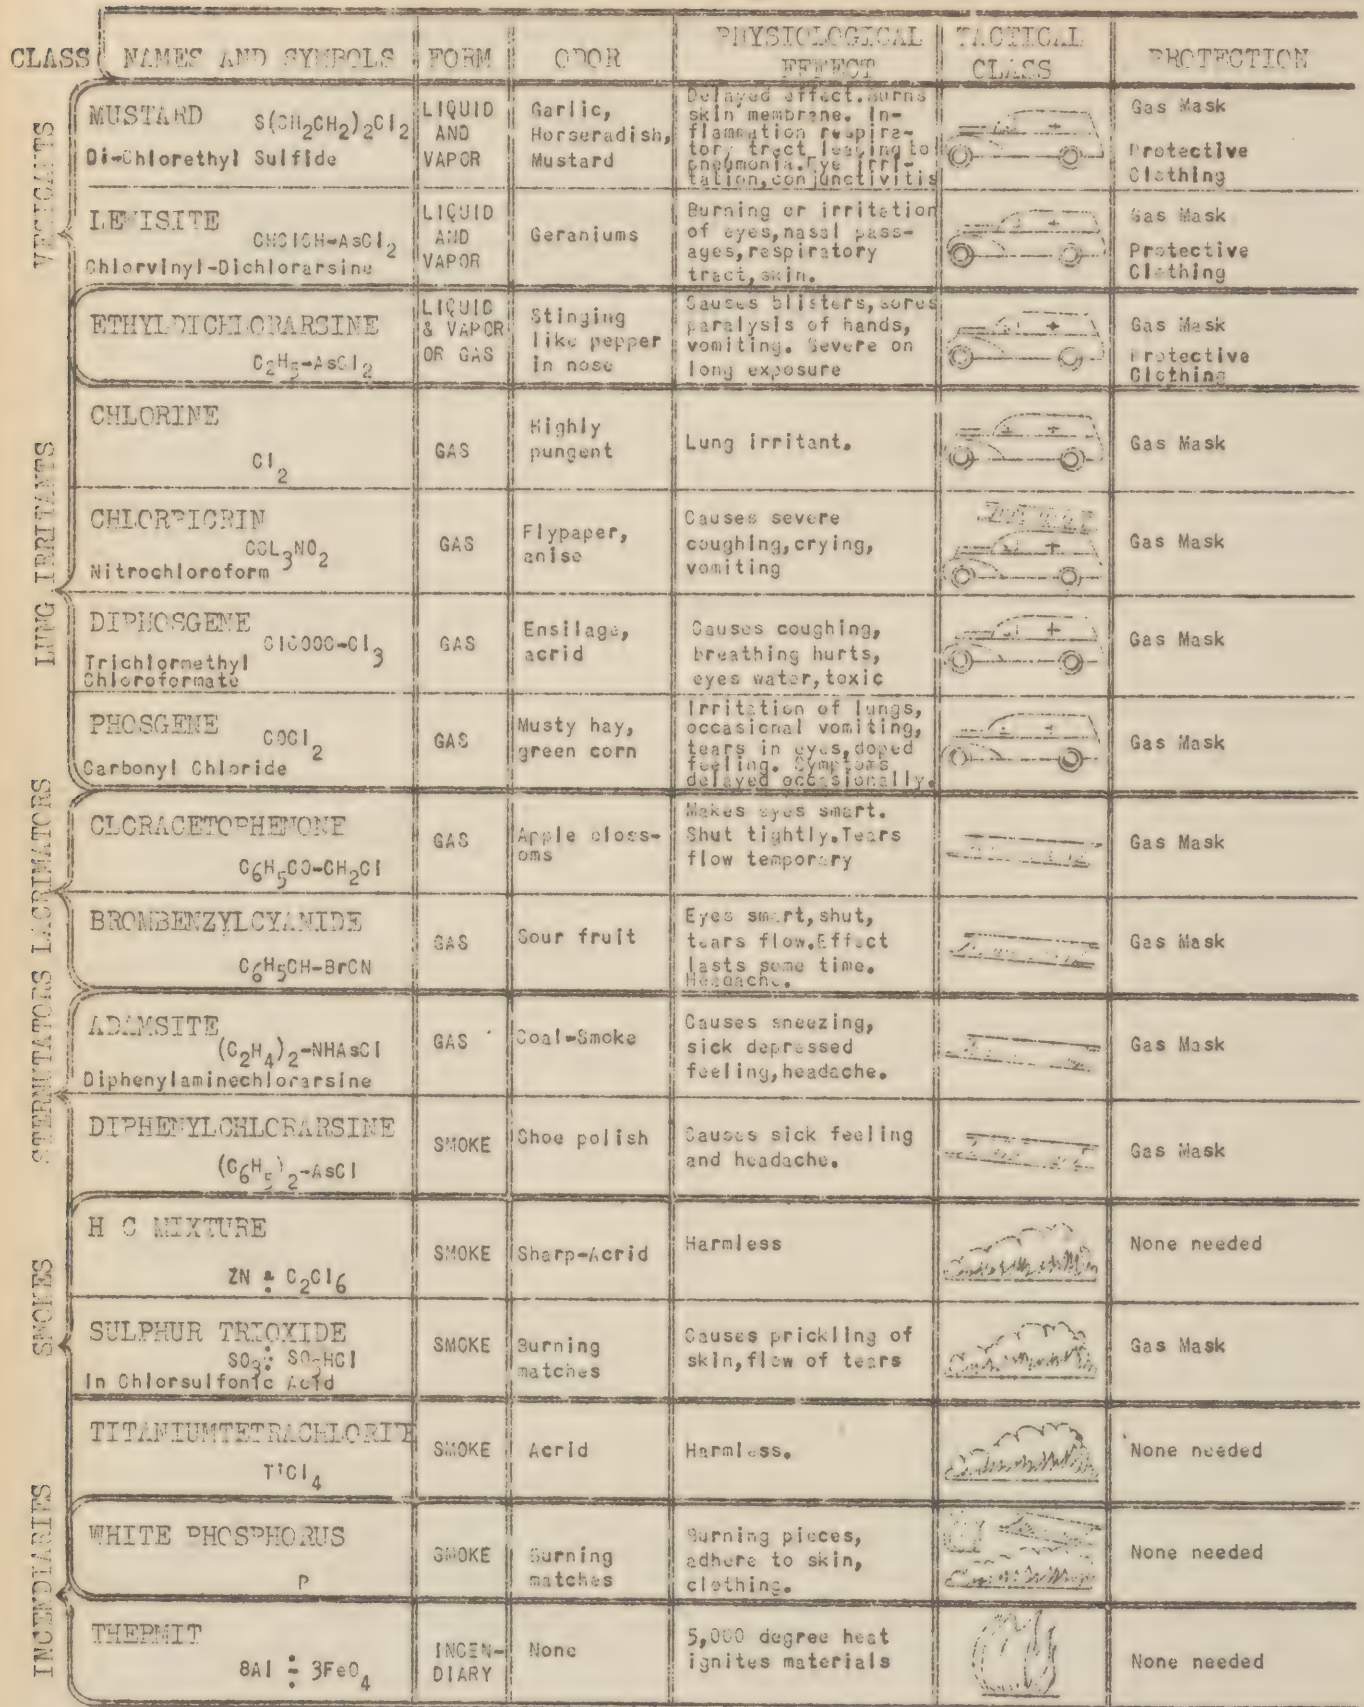 CLASS NAMES AND SYMBOLS FORM ODOR PHYSIOLOGICAL EFFECT TACTICAL CLASS PROTECTION
VESICANTS
MUSTARD S(CH2CH2)2Cl2
Di-Chlorethyl Sulfide
LIQUID
AND
VAPOR
Garlic,
Horseradish,
Mustard
Delayed effect. Burns
skin membrane. In-
flammation respira-
tory tract leading to
pneumonia. Eye irri-
tation, conjunctivitis
Gas Mask
Protective
Clothing
LEWISITE
CHClCH-AsCl2
Chlorvinyl-Dichlorarsine
LIQUID
AND
VAPOR
Geraniums
Burning or irritation
of eyes, nasal pass-
ages, respiratory
tract, skin.
Gas Mask
Protective
Clothing
ETHYLDICHLORARSINE
C2H5-AsCl2
LIQUID
& VAPOR
OR GAS
Stinging
like pepper
in nose
Causes blisters, sores
paralysis of hands,
vomiting. Severe on
long exposure
Gas Mask
Protective
Clothing
LUNG IRRITANTS
CHLORINE
Cl2
GAS
Highly
pungent
Lung irritant.
Gas Mask
CHLORPICRIN
CCL3NO2
Nitrochloroform
GAS
Flypaper,
anise
Causes severe
coughing, crying,
vomiting
Gas Mask
DIPHOSGENE
ClCOOC-Cl3
Trichlormethyl
Chloroformate
GAS
Ensilage,
acrid
Causes coughing,
breathing hurts,
eyes water, toxic
Gas Mask
PHOSGENE
COCl2
Carbonyl Chloride
GAS
Musty hay,
green corn
Irritation of lungs,
occasional vomiting,
tears in eyes, doped
feeling. Symptoms
delayed occasionally.
Gas Mask
LACRIMATORS
CLORACETOPHENONE
C6H5CO-CH2Cl
GAS
Apple bloss-
oms
Makes eyes smart.
Shut tightly. Tears
flow temporary
Gas Mask
BROMBENZYLCYANIDE
C6H5CH-BrCN
GAS
Sour fruit
Eyes smart, shut,
tears flow. Effect
lasts some time.
Headache.
Gas Mask
STERNUTATORS
ADAMSITE
(C2H4)2-NHAsCl
Diphenylaminechlorarsine
GAS
Coal-Smoke
Causes sneezing,
sick depressed
feeling, headache.
Gas Mask
DIPHENYLCHLORARSINE
(C6H5)2-AsCl
SMOKE
Shoe polish
Causes sick feeling
and headache.
Gas Mask
SMOKES
H C MIXTURE
ZN + C2Cl6
SMOKE
Sharp-Acrid
Harmless
None needed
SULPHUR TRIOXIDE
SO3: SO3HCl
In Chlorsulfonic Acid
SMOKE
Burning
matches
Causes prickling of
skin, flow of tears
Gas Mask
TITANIUMTETRACHLORITE
TiCl4
SMOKE
Acrid
Harmless.
None needed
INCENDIARIES
WHITE PHOSPHORUS
P
SMOKE
Burning
matches
Burning pieces,
adhere to skin,
clothing.
None needed
THERMIT
8Al ÷ 3FeO4
INCEN-
DIARY
None
5,000 degree heat
ignites materials
None needed